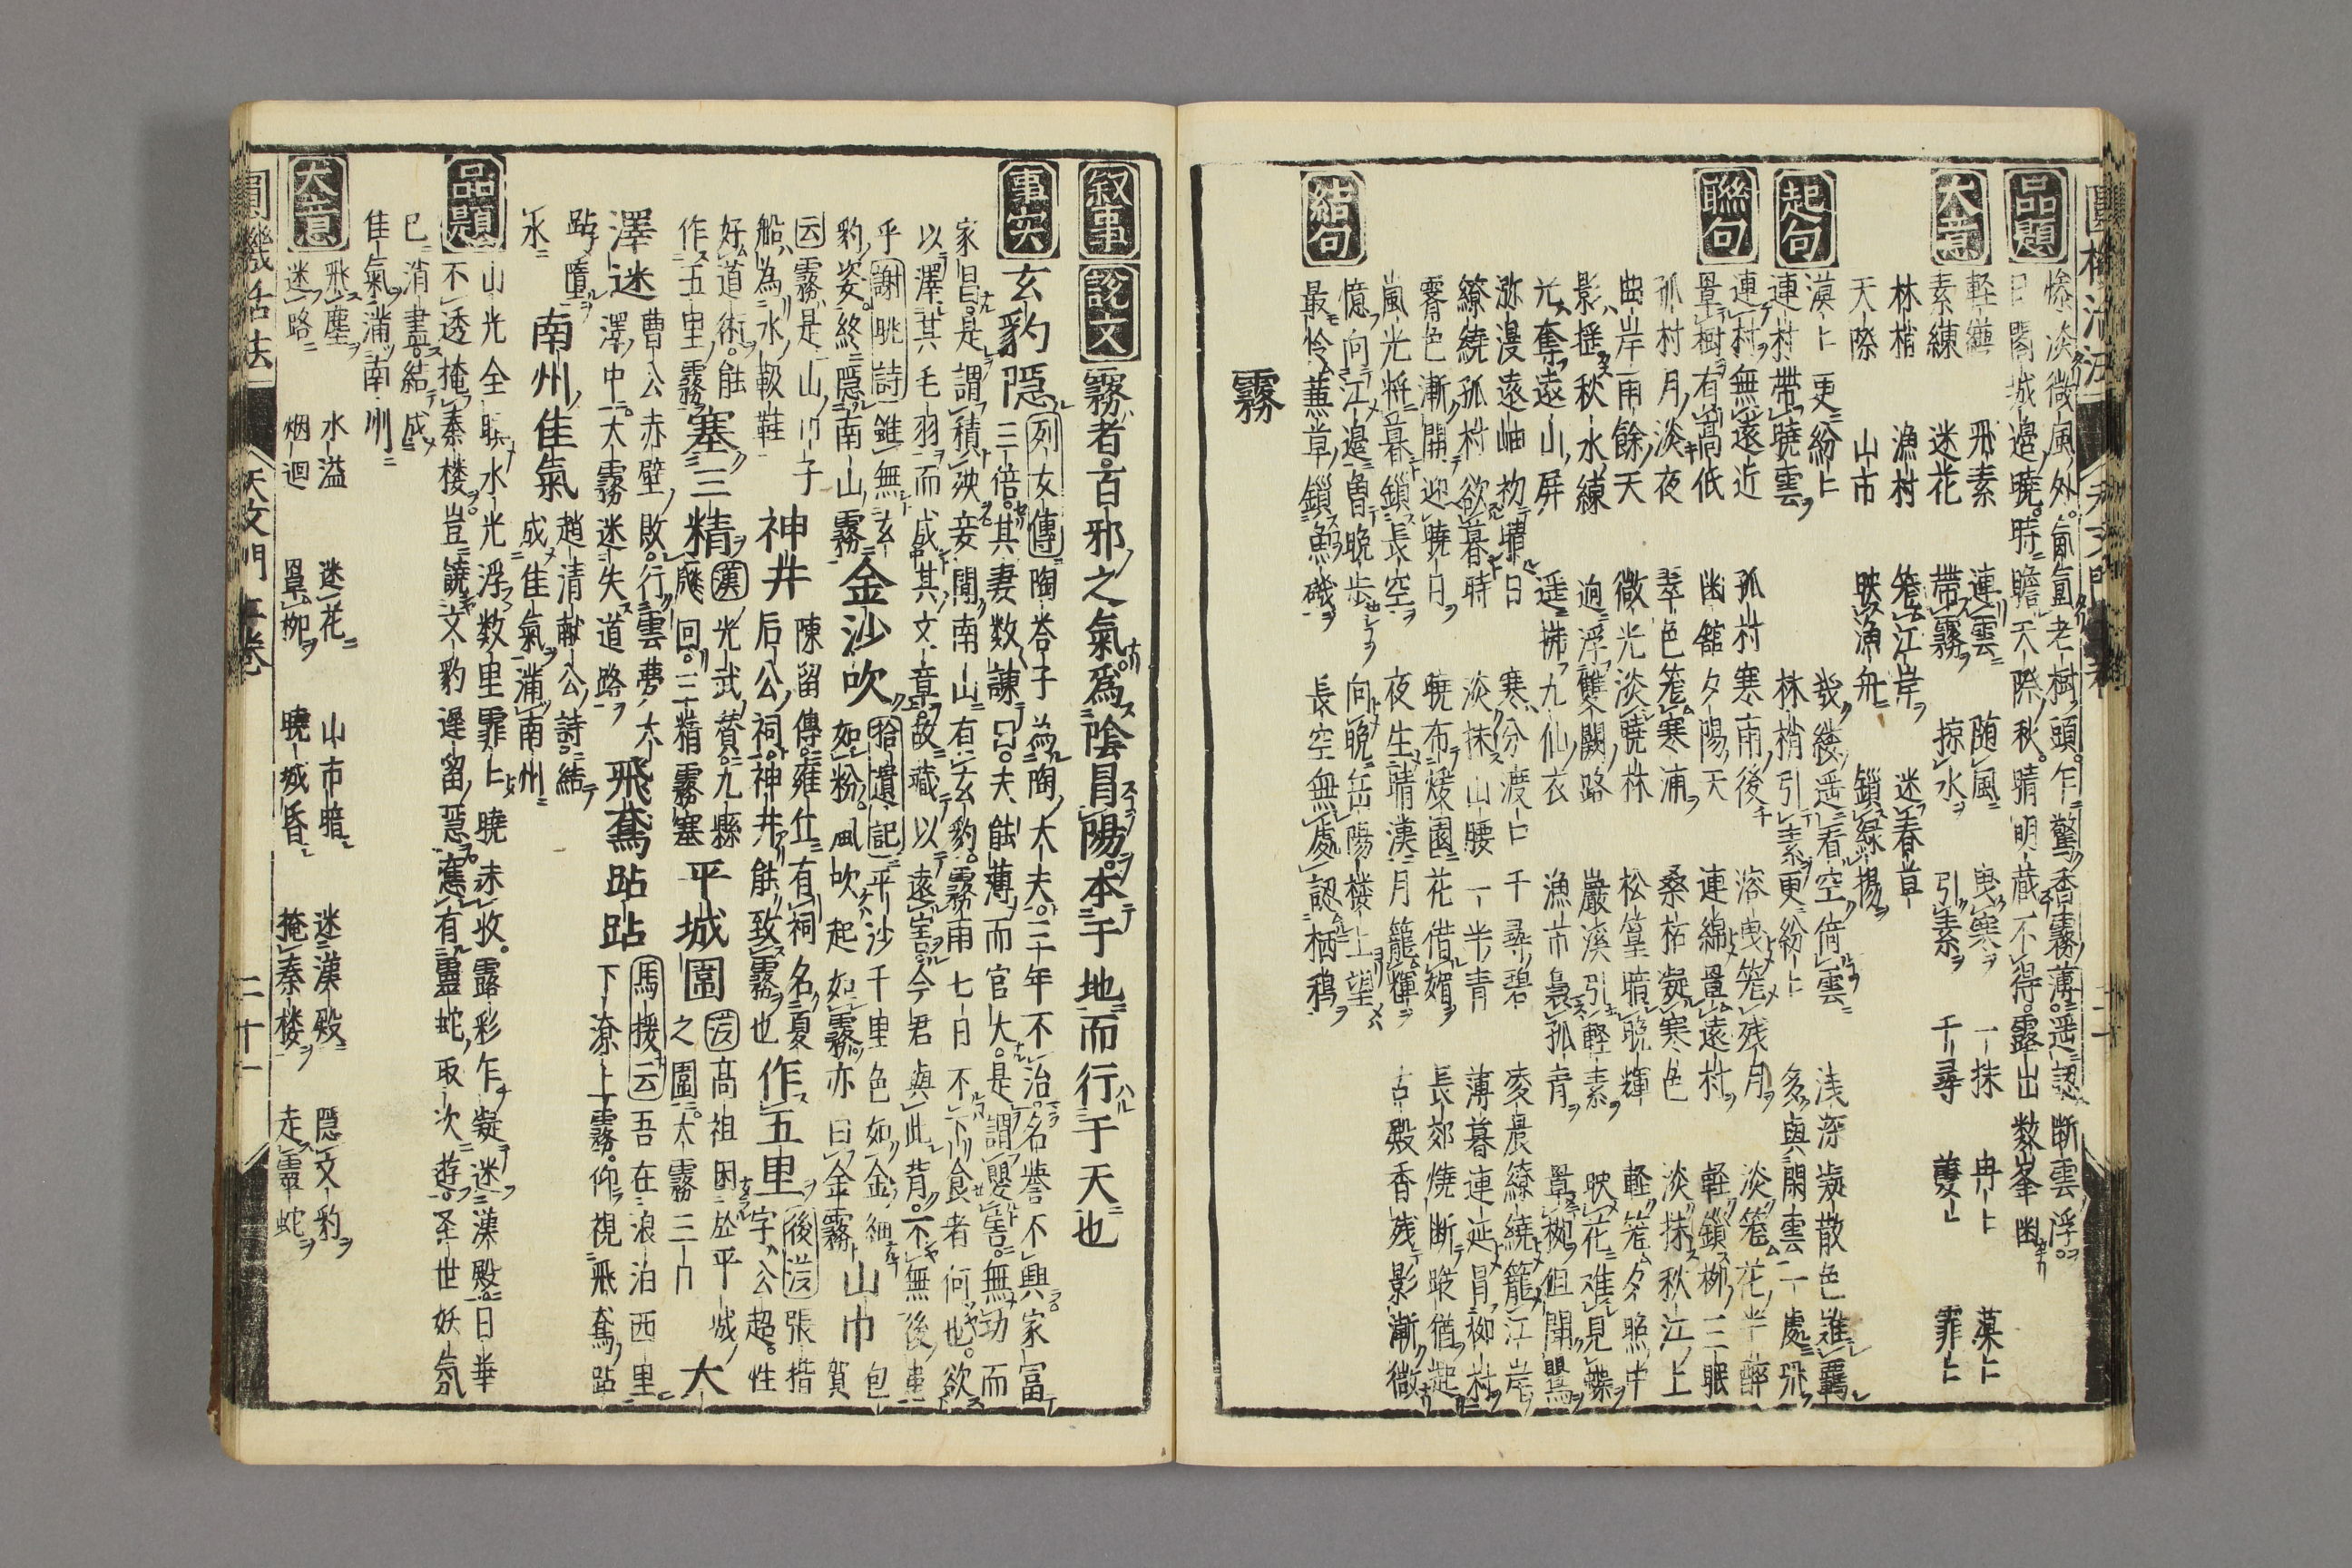 品題
惨淡微風外。氤氳老樹頭。乍驚香霧薄。遥認断雲浮。
日閣城邉暁。時瞻天際秋。晴明蔵不得。露出数峯幽
大意
軽繊 飛素 連雲 随風 曳寒 一抹 冉〻 漠〻
素練 迷花 帯霧 掠水 引素 千尋 霏〻
林梢 漁村 篭江岸 迷春草
天際 山市 映漁舟 鎖緑楊
起句
漠〻更紛〻 幾縷遥看空倚雲 浅深凝散色誰羇
連村帯暁雲 林梢引素更紛〻 多與閑雲一處飛
聯句
連村無遠近 孤村寒雨後 溶曳篭残月 淡篭花半酔
羃樹有髙低 幽舘夕陽天 連綿羃遠村 軽鎖栁三眠
孤村月淡夜 翠色篭寒浦 桑柘凝寒色 淡抹秋江上
曲岸雨餘天 微光淡暁林 松篁暗晩輝 軽篭夕照中
影揺秋水練 逈浮雙闕路 巖溪引軽素 映花难見蝶
光奪遠山屏 遥拂九仙衣 漁市裊孤青 羃栁但聞鸎
渺漫遠岫初晴日 寒分渡口千尋碧 麥晨繚繞籠江岸
繚繞孤村欲暮時 淡抹山腰一半青 薄暮連延冐栁村
霽色漸開迎暁日 暁布煖園花借媚 長郊燒断蹤猶起
嵐光将暮鎖長空 夜生晴漢月籠輝 古殿香残影漸微
結句
憶向江邉曽晩歩 向晩岳陽楼上望
最怜蕙草鎖魚磯 長空無處認栖鵶
霧
叙事
説文 霧者。百邪之氣爲陰冒陽。本于地而行于天也
事実
玄豹隠 列女傳 陶荅子為陶大夫。三年不治。名誉不興家冨
三倍。其妻数諌曰。夫能薄而官大。是謂嬰害。無功而
家昌。是謂積殃。妾聞南山有玄豹。霧雨七日不下食者何也。欲
以澤其毛羽而成其文章。故藏以遠害。今君與此背。不無後患
乎 謝眺詩 雖無玄 金沙吹 拾遺記 平沙千里色如金細 山巾 包
豹姿。終隠南山霧 如粉。風吹起如霧。亦曰金霧 賀
云霧是山巾子 神井 陳留傳。雍丘有祠名夏 作五里 後漢 張揩
船為水靸鞋 后公祠。神井能致霧也 字公超。性
好道術。能 塞三精 漢 光武賛。九縣 平城圍 漢 髙祖困於平城 大
作五里霧 廱回。三精霧塞 之圍。大霧三日
澤迷 曹公赤壁敗。行雲夢大 飛鳶跕跕 馬援云 吾在浪泊西里
澤中。大霧迷失道路 下潦上霧。仰視飛鳶跕
跕墮 南州佳氣 趙清献公詩。結
水 成佳氣満南州
品題
山光全映水光浮 数里霏〻暁未收。露彩乍凝迷漢殿。日華
不透掩秦楼。豈饒文豹遅留隠。舊有靈蛇取次遊。圣世妖氛
已消盡。結成
佳氣満南州
大意
飛塵 水溢 迷花 山市暗 迷漢殿 隠文豹
迷路 烟迴 羃栁 暁城昏 掩秦楼 走霊蛇
圓機活法 天文門一巻 二十一